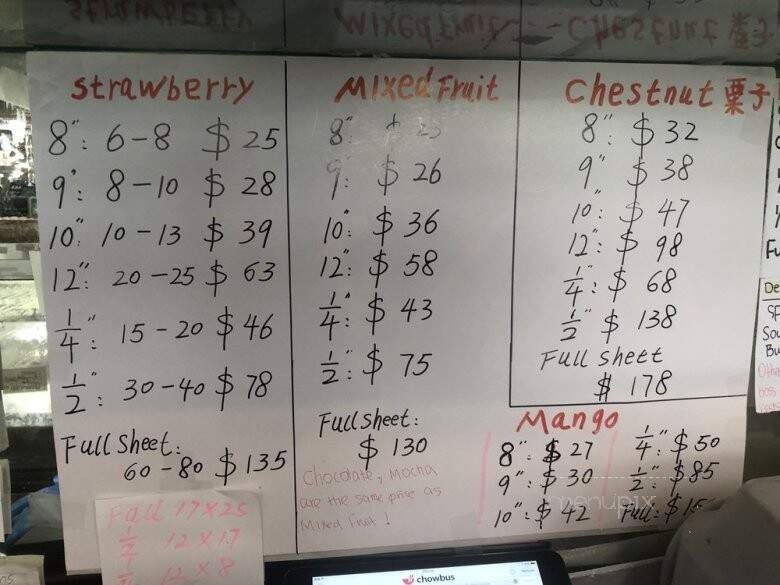 strawberry
8": 6-8 $25
9": 8-10 $28
10" 10-13 $39
12": 20-25 $63
1/4": 15-20 $46
1/2": 30-40 $78
Full sheet:
60-80 $135
Full 17x25
1/2 12x17
12x8
Mixed Fruit
8":
9": $26
10": $36
12": $58
1/4": $43
1/2": $75
Full sheet:
$130
Chocolate, Mocha
are the same price as
Mixed fruit!
Chestnut 栗子
8": $32
9" $38
10": $47
12": $98
1/4": $68
1/2" $138
Full sheet
$178
Mango
8": $27
9": $30
10": $42
1/4": $50
1/2": $85
Full: $
menupix
chowbus